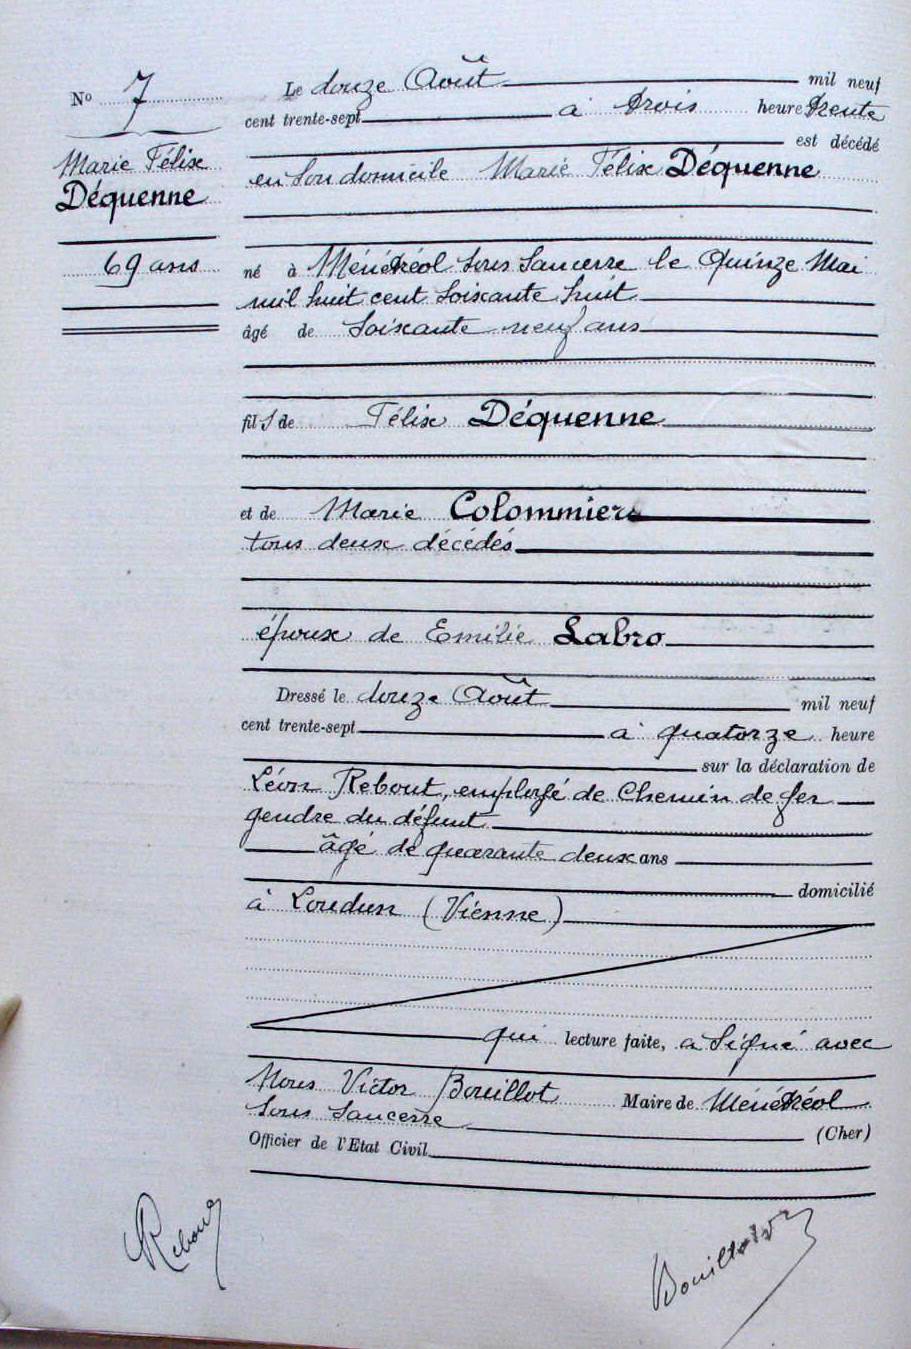 N° 7
Marie Félix
Déquenne
69 ans
Le douze Août mil neuf
cent trente-sept à trois heure trente
est décédé
en son domicile Marie Félix Déquenne
né à Ménétréol sous Sancerre le Quinze Mai
mil huit cent soixante huit
âgé de soixante neuf ans
fils de Félix Déquenne
et de Marie Colommiers
tous deux décédés
époux de Emilie Labro
Dressé le douze Août mil neuf
cent trente-sept à quatorze heure
sur la déclaration de
Léon Rebout, employé de Chemin de fer
gendre du défunt
âgé de quarante deux ans
domicilié
à Loudun (Vienne)
qui lecture faite, a signé avec
Nous Victor Bouillot Maire de Ménétréol
sous Sancerre (Cher)
Officier de l'Etat Civil
Rebout